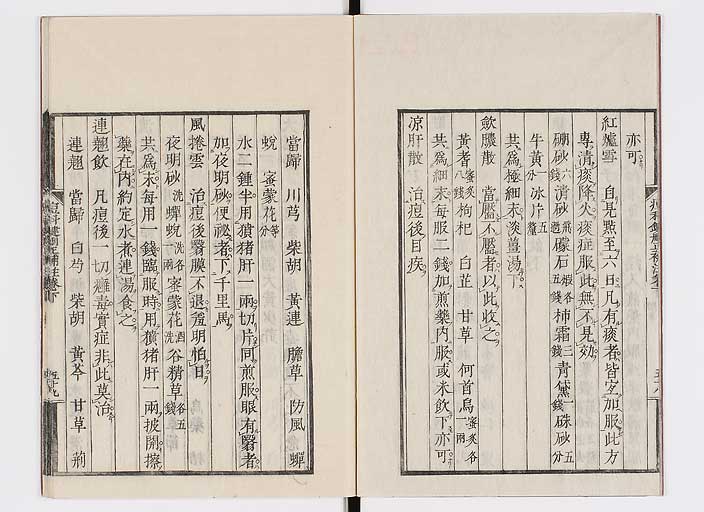 亦可
紅爐雪　自見點至六日凡有痰者皆宜加服此方
專清痰降火痰症服此無不見効
硼砂六錢　清砂　礞石煆各五錢　柿霜三錢　青黛一錢　硃砂五分
牛黄五分　冰片一釐
共為極細末淡薑湯下
斂膿散　當靨不靨者以此收之
黄耆蜜炙八錢　枸杞　白芷　甘草　何首烏蜜炙各一兩
共為末每服二錢加煎藥内服或米飲下亦可
凉肝散　治痘後目疾
當歸　川芎　柴胡　黄連　膽草　防風　蟬
蛻　蜜蒙花各等分
水二鍾半用豶猪肝一兩切片同煎服眼有翳者
加夜明砂便祕者下千里馬
風捲雲　治痘後翳膜不退羞明怕日
夜明砂洗　蟬蛻洗各一兩　蜜蒙花酒洗　谷精草各五錢
共為末每用一錢臨服時用豶猪肝一兩披開擦
藥在内約定水煮連湯食之
連翹飲　凡痘後一切癰毒實症非此莫治
連翹　當歸　白芍　柴胡　黄芩　甘草　荊